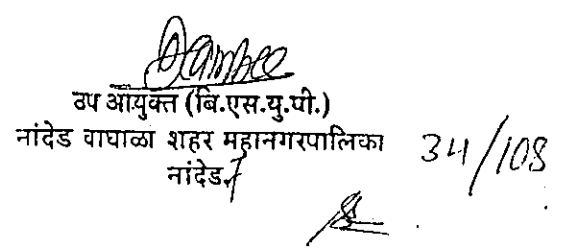 उप आयुक्त (बि.एस.यु.पी.)
नांदेड वाघाळा शहर महानगरपालिका
नांदेड.
34/108